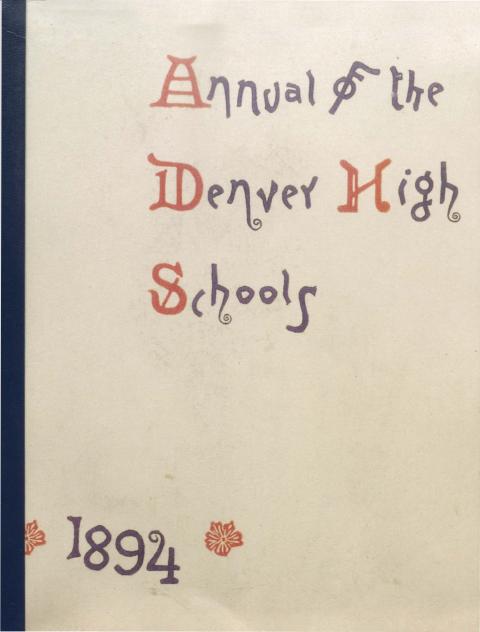 Annual of the
Denver High
Schools
1894